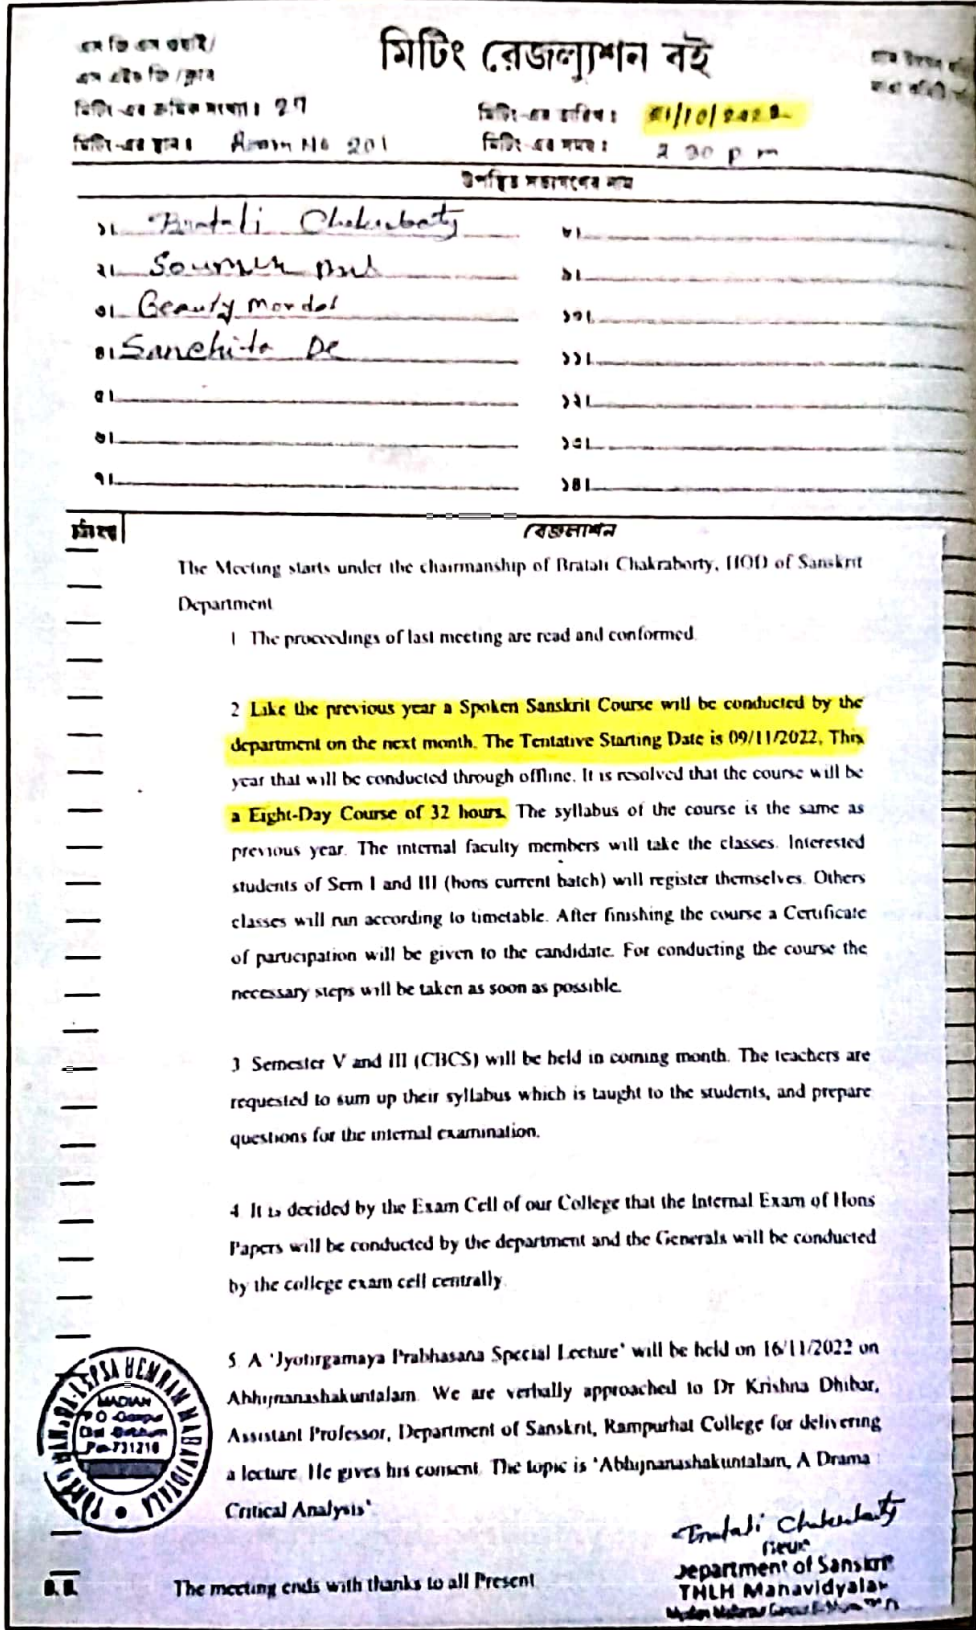 এস জি এস ওয়াই/
মিটিং রেজল্যুশন বই
এস এইচ জি /ক্লাব
মিটিং-এর ক্রমিক সংখ্যা: 27
মিটিং-এর তারিখ: /10/2022
মিটিং-এর স্থান: Room No 201
মিটিং-এর সময়: 2 30 p m
উপস্থিত সভ্যগণের নাম
১। Bratati Chakraborty
৮।
২। Soumen
৯।
৩। Beauty Mondal
১০।
৪। Sanchita De
১১।
৫।
১২।
৬।
১৩।
৭।
১৪।
রেজল্যুশন
The Meeting starts under the chairmanship of Bratati Chakraborty, HOD of Sanskrit
Department
1 The proceedings of last meeting are read and conformed.
2 Like the previous year a Spoken Sanskrit Course will be conducted by the
department on the next month. The Tentative Starting Date is 09/11/2022. This
year that will be conducted through offline. It is resolved that the course will be
a Eight-Day Course of 32 hours. The syllabus of the course is the same as
previous year. The internal faculty members will take the classes. Interested
students of Sem I and III (hons current batch) will register themselves. Others
classes will run according to timetable. After finishing the course a Certificate
of participation will be given to the candidate. For conducting the course the
necessary steps will be taken as soon as possible.
3 Semester V and III (CBCS) will be held in coming month. The teachers are
requested to sum up their syllabus which is taught to the students, and prepare
questions for the internal examination.
4 It is decided by the Exam Cell of our College that the Internal Exam of Hons
Papers will be conducted by the department and the Generals will be conducted
by the college exam cell centrally.
5. A 'Jyotirgamaya Prabhasana Special Lecture' will be held on 16/11/2022 on
Abhijnanashakuntalam. We are verbally approached to Dr Krishna Dhibar,
Assistant Professor, Department of Sanskrit, Rampurhat College for delivering
a lecture. He gives his consent. The topic is 'Abhijnanashakuntalam, A Drama :
Critical Analysis'.
HEMRAM MAHAVIDYALA
MADIAN
P.O -Ganpur
Dist -Birbhum
Pin-731216
Bratati Chakraborty
Department of Sanskrit
THLH Mahavidyalay
The meeting ends with thanks to all Present